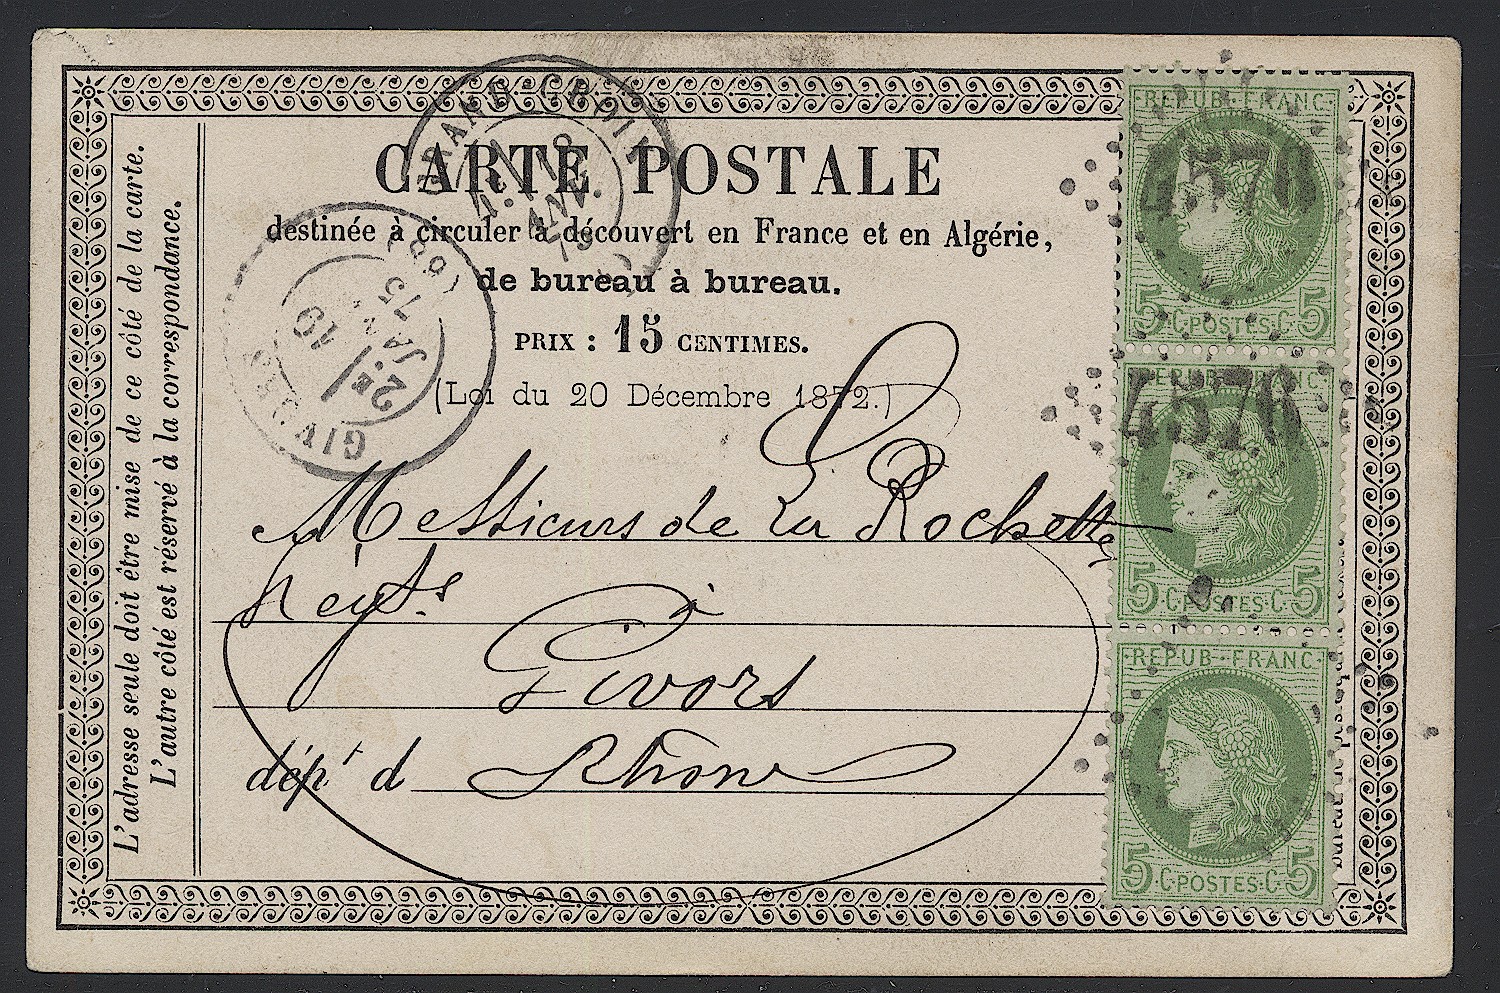 CARTE POSTALE
destinée à circuler à découvert en France et en Algérie,
de bureau à bureau.
PRIX : 15 CENTIMES.
(Loi du 20 Décembre 1872.)
Messieurs de La Rochette
à
Givors
dépt d Rhône
L'adresse seule doit être mise de ce côté de la carte.
L'autre côté est réservé à la correspondance.
GRAND-CROIX
GIVORS
(68)
2E
19
JANV
75
REPUB-FRANC-
4576
5 ·C·POSTES·C· 5
REPUB-FRANC-
4576
5 ·C·POSTES·C· 5
REPUB-FRANC-
5 ·C·POSTES·C· 5